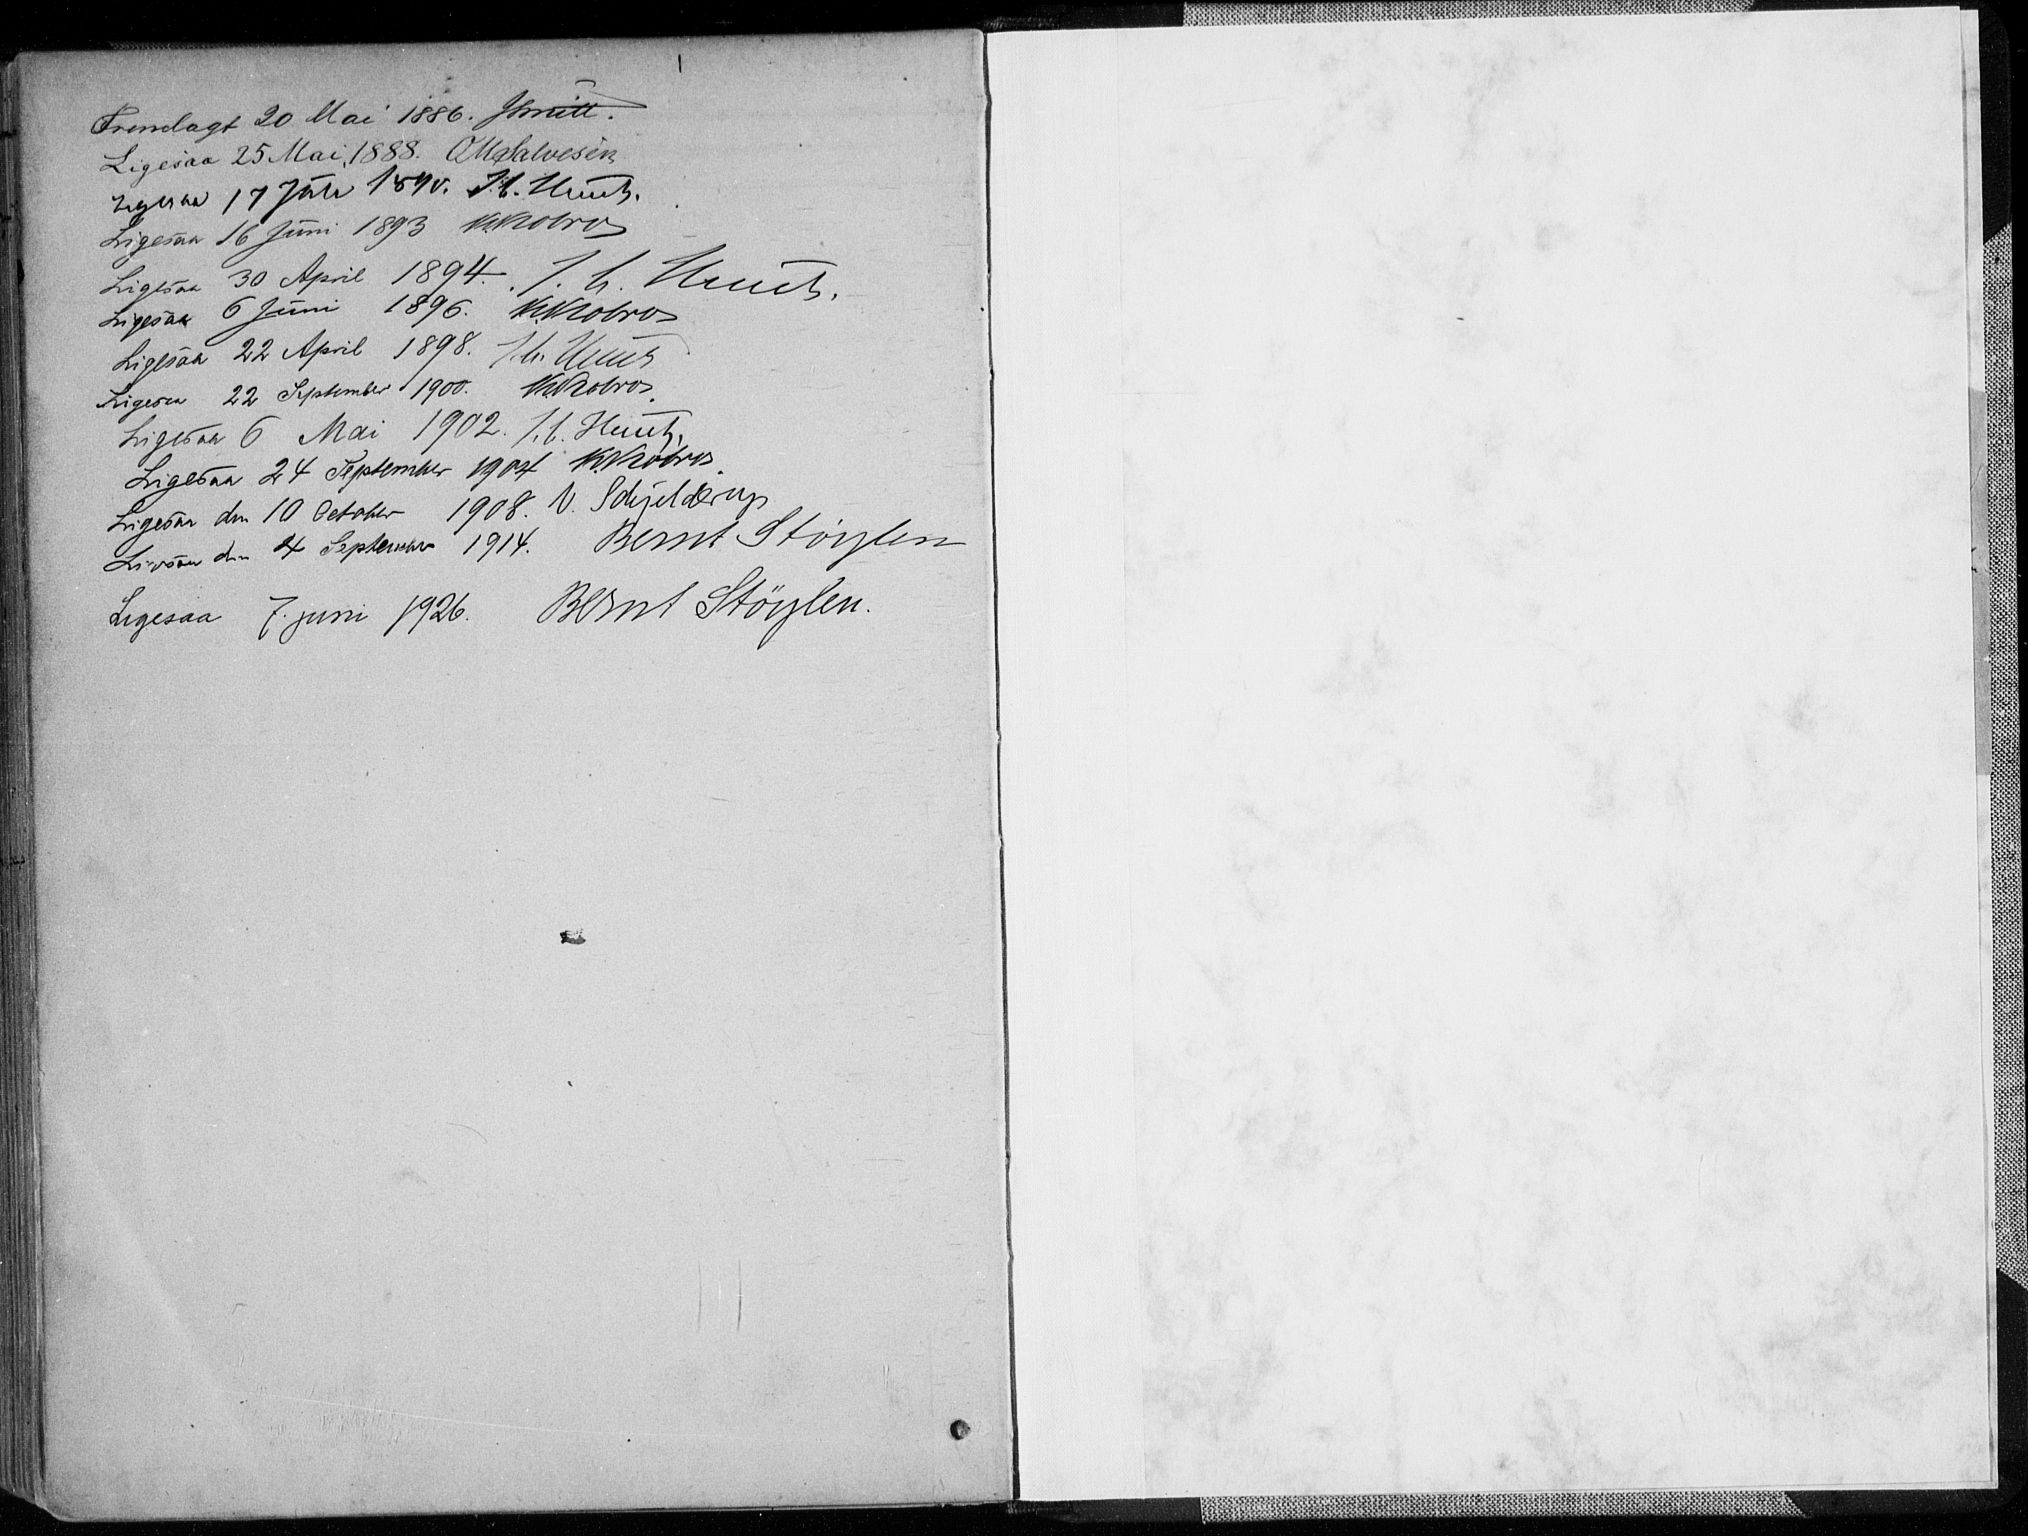 Fremlagt 20 Mai 1886. JSmitt.
Ligesaa 25 Mai 1888. Salvesen
Ligesaa 17 Juli 1890. J. C. Heuch.
Ligesaa 16 Juni 1893 KKobro
Ligesaa 30 April 1894. J. C. Heuch.
Ligesaa 6 Juni 1896. KKobro
Ligesaa 22 April 1898. J. C. Heuch
Ligesaa 22 September 1900. KKobro
Ligesaa 6 Mai 1902. J. C. Heuch.
Ligesaa 24 September 1904 KKobro
Ligesaa den 10 October 1908. V. Schjelderup
Ligesaa den 4 September 1914. Bernt Støylen
Ligesaa 7. juni 1926. Bernt Støylen.